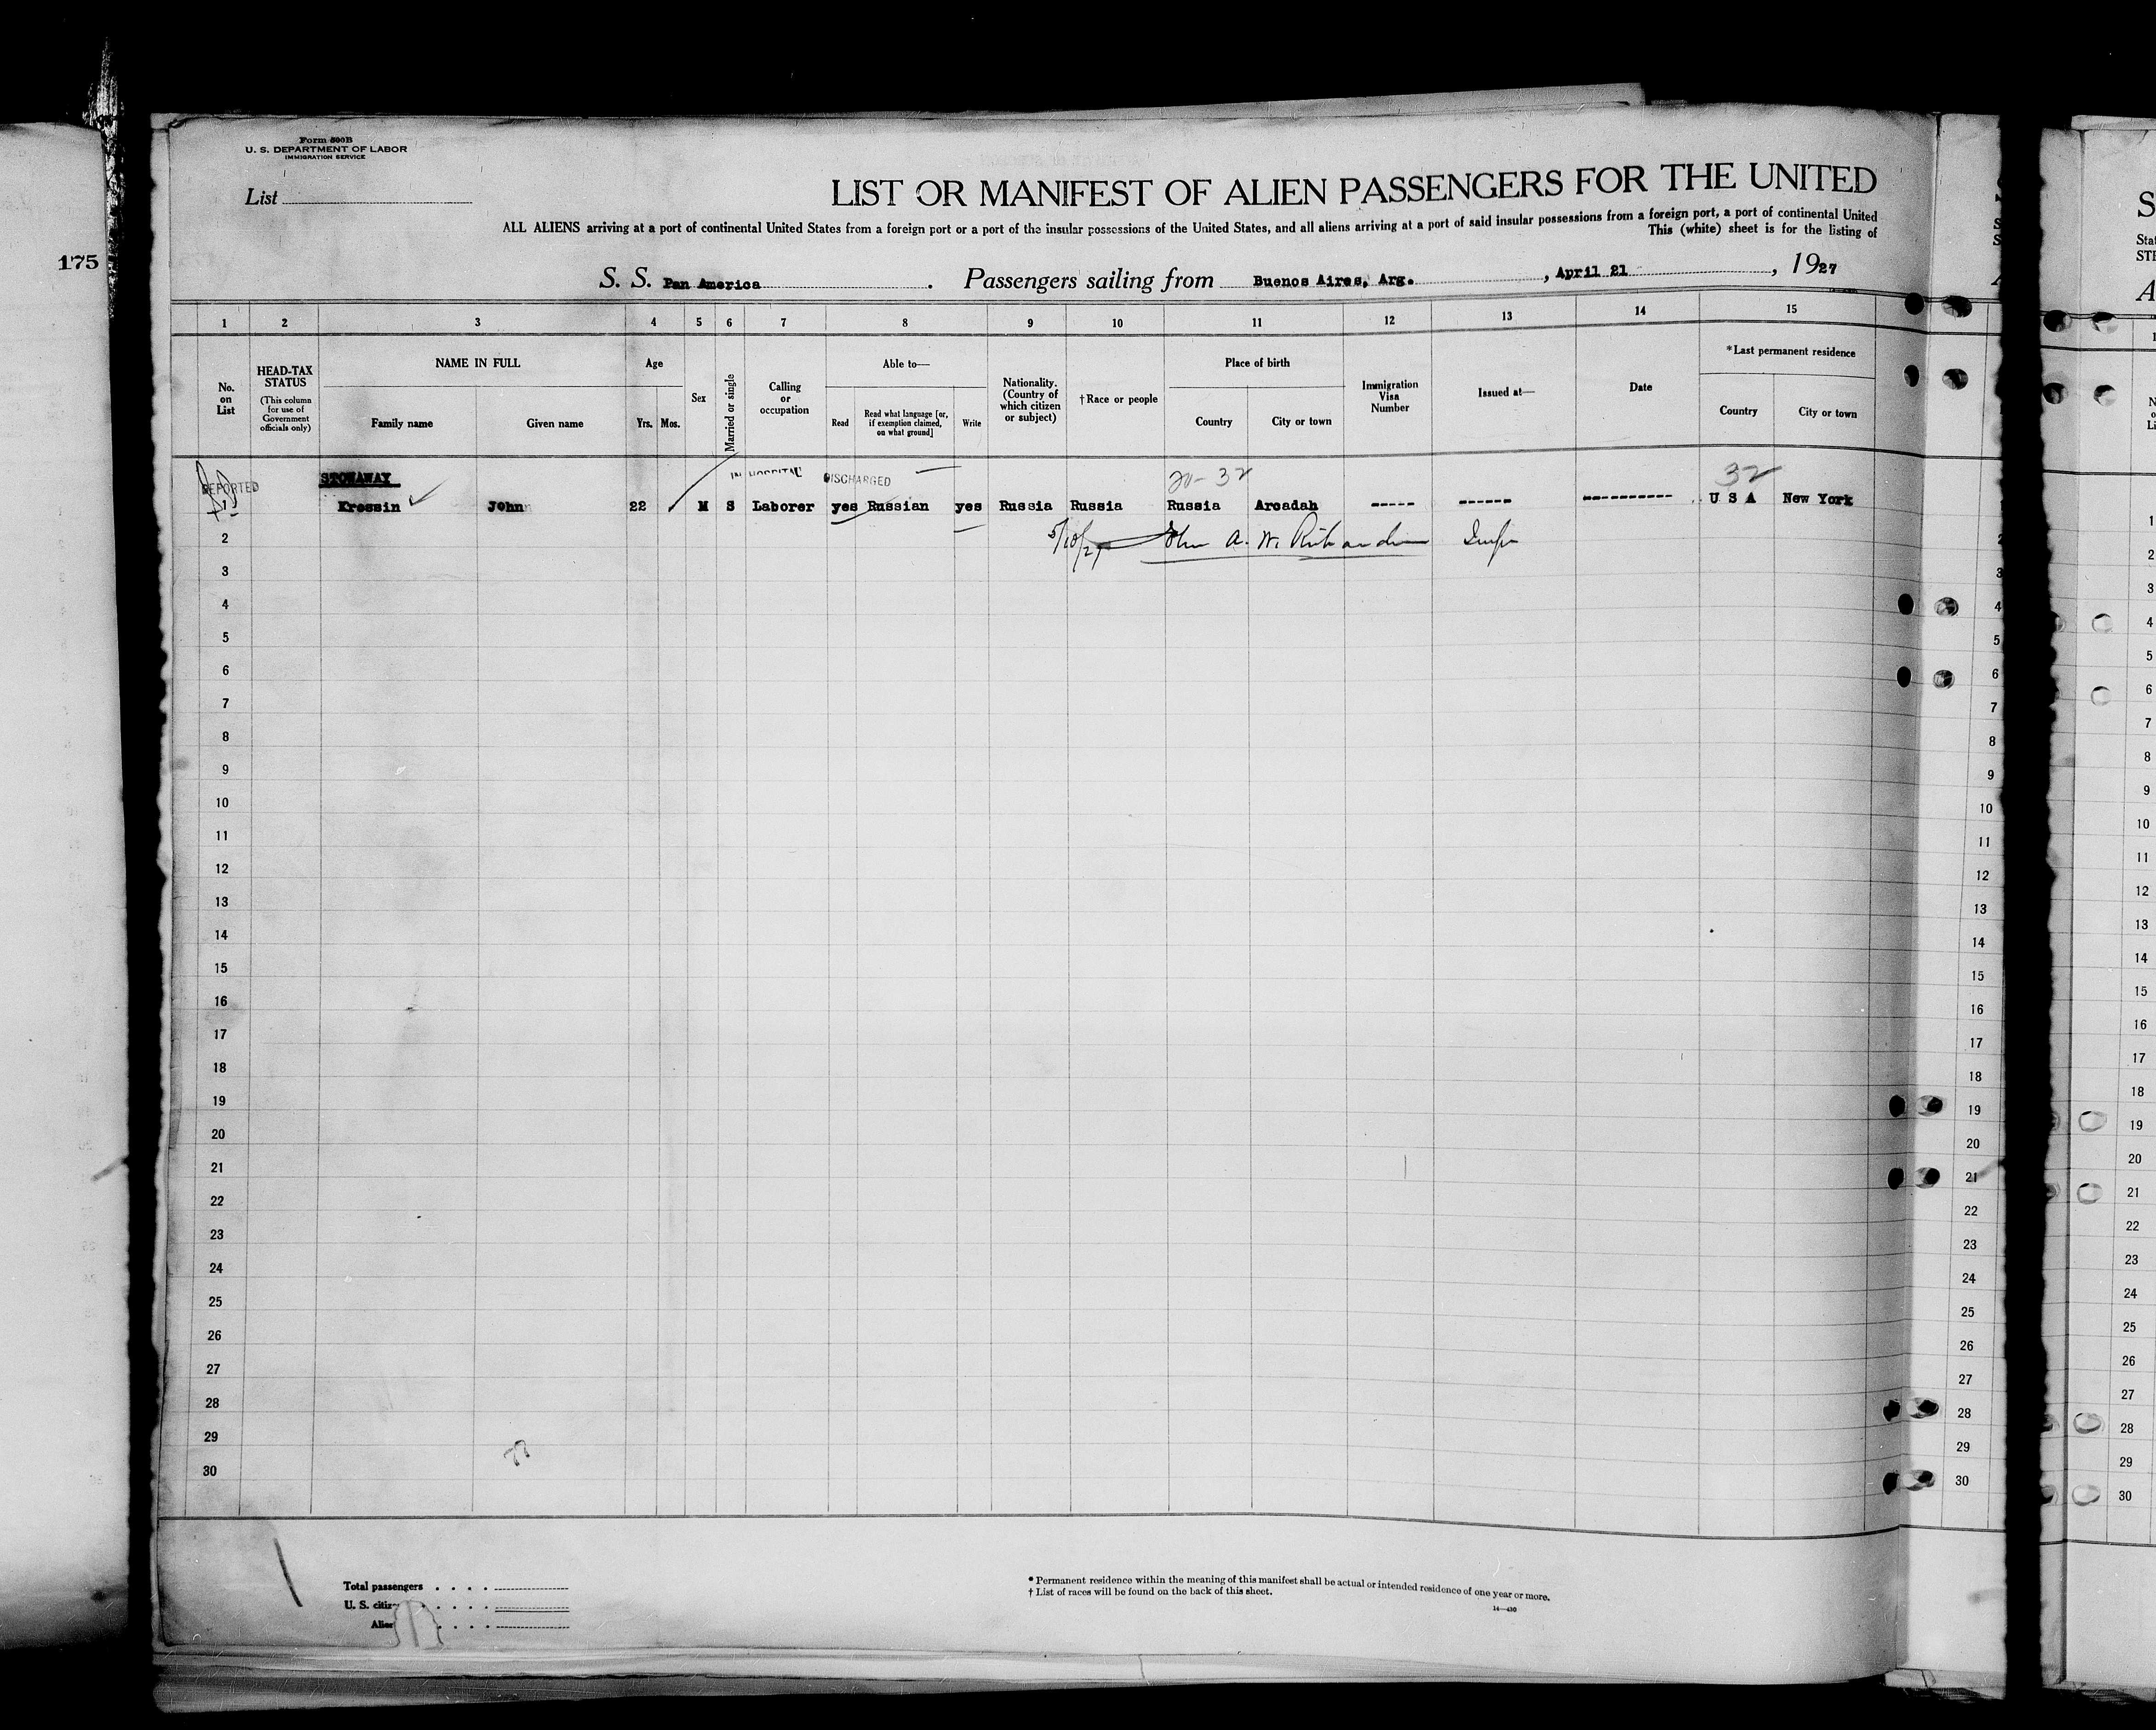 175
Form 500B
U. S. DEPARTMENT OF LABOR
IMMIGRATION SERVICE
List
LIST OR MANIFEST OF ALIEN PASSENGERS FOR THE UNITED
ALL ALIENS arriving at a port of continental United States from a foreign port or a port of the insular possessions of the United States, and all aliens arriving at a port of said insular possessions from a foreign port, a port of continental United
This (white) sheet is for the listing of
S. S. Pan America . Passengers sailing from Buenos Aires, Arg. , April 21 , 1927
1 2 3 4 5 6 7 8 9 10 11 12 13 14 15
No. on List
HEAD-TAX STATUS
(This column for use of Government officials only)
NAME IN FULL
Family name
Given name
Age
Yrs. Mos.
Sex
Married or single
Calling or occupation
Able to—
Read
Read what language [or, if exemption claimed, on what ground]
Write
Nationality. (Country of which citizen or subject)
†Race or people
Place of birth
Country
City or town
Immigration Visa Number
Issued at—
Date
*Last permanent residence
Country
City or town
STOWAWAY
IN HOSPITAL DISCHARGED
20-32
32
DEPORTED
1 Kressin John 22 M S Laborer yes Russian yes Russia Russia Russia Arcadah ----- ------ ---------- U S A New York
2 5/10/27 John A. W. Richardson
3
4
5
6
7
8
9
10
11
12
13
14
15
16
17
18
19
20
21
22
23
24
25
26
27
28
29
30
Total passengers
U. S. citiz
Alien
* Permanent residence within the meaning of this manifest shall be actual or intended residence of one year or more.
† List of races will be found on the back of this sheet.
14—430